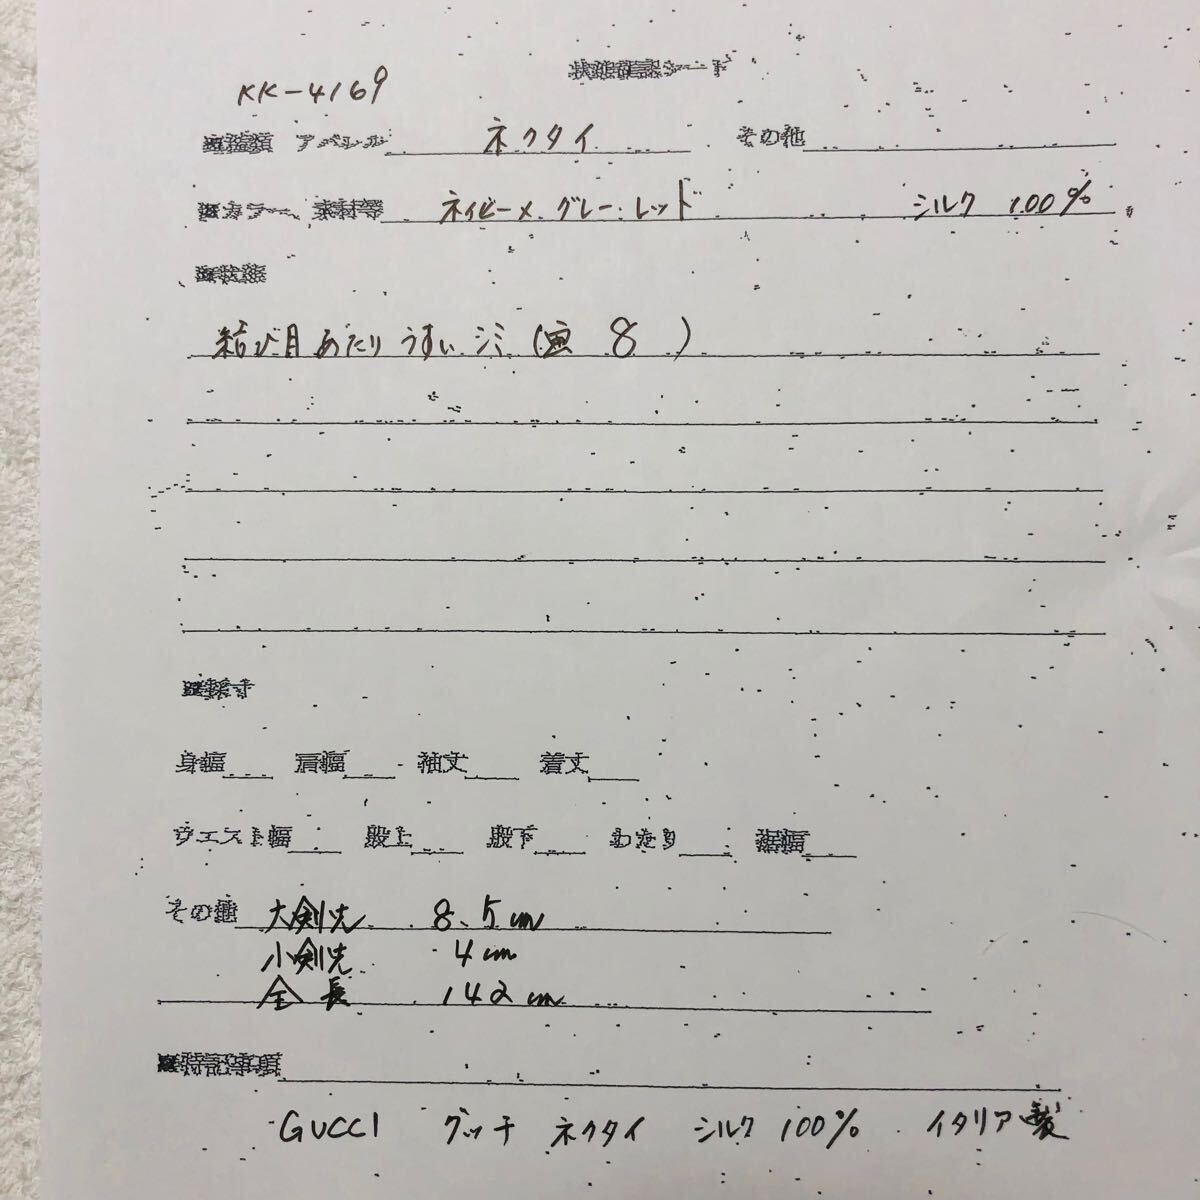 状態確認シート
KK-4169
■種類 アパレル ネクタイ その他
■カラー、素材等 ネイビー×グレー・レッド シルク 100%
■状態
結び目あたり うすいシミ (画 8 )
■採寸
身幅 肩幅 袖丈 着丈
ウエスト幅 股上 股下 わたり 裾幅
その他 大剣先 8.5cm
小剣先 4cm
全長 142cm
■特記事項
GUCCI グッチ ネクタイ シルク 100% イタリア製